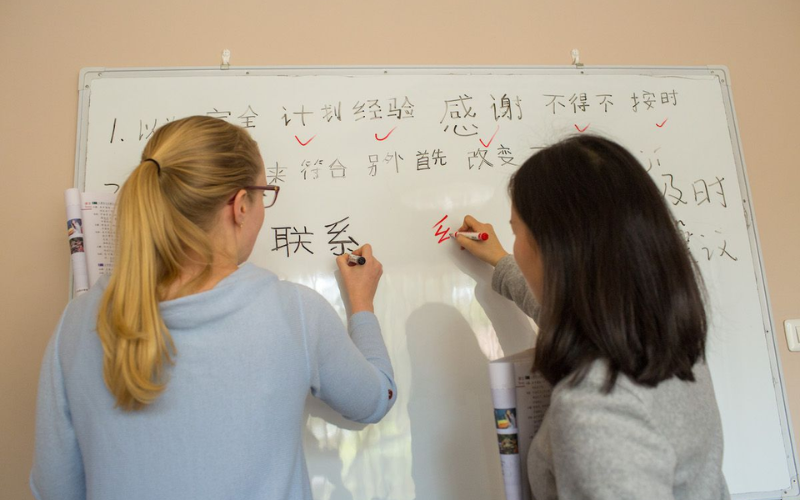 1. 以 全 计划 经验 感谢 不得不 按时
来 符合 另外 首先 改变
及时
议
联系 纟